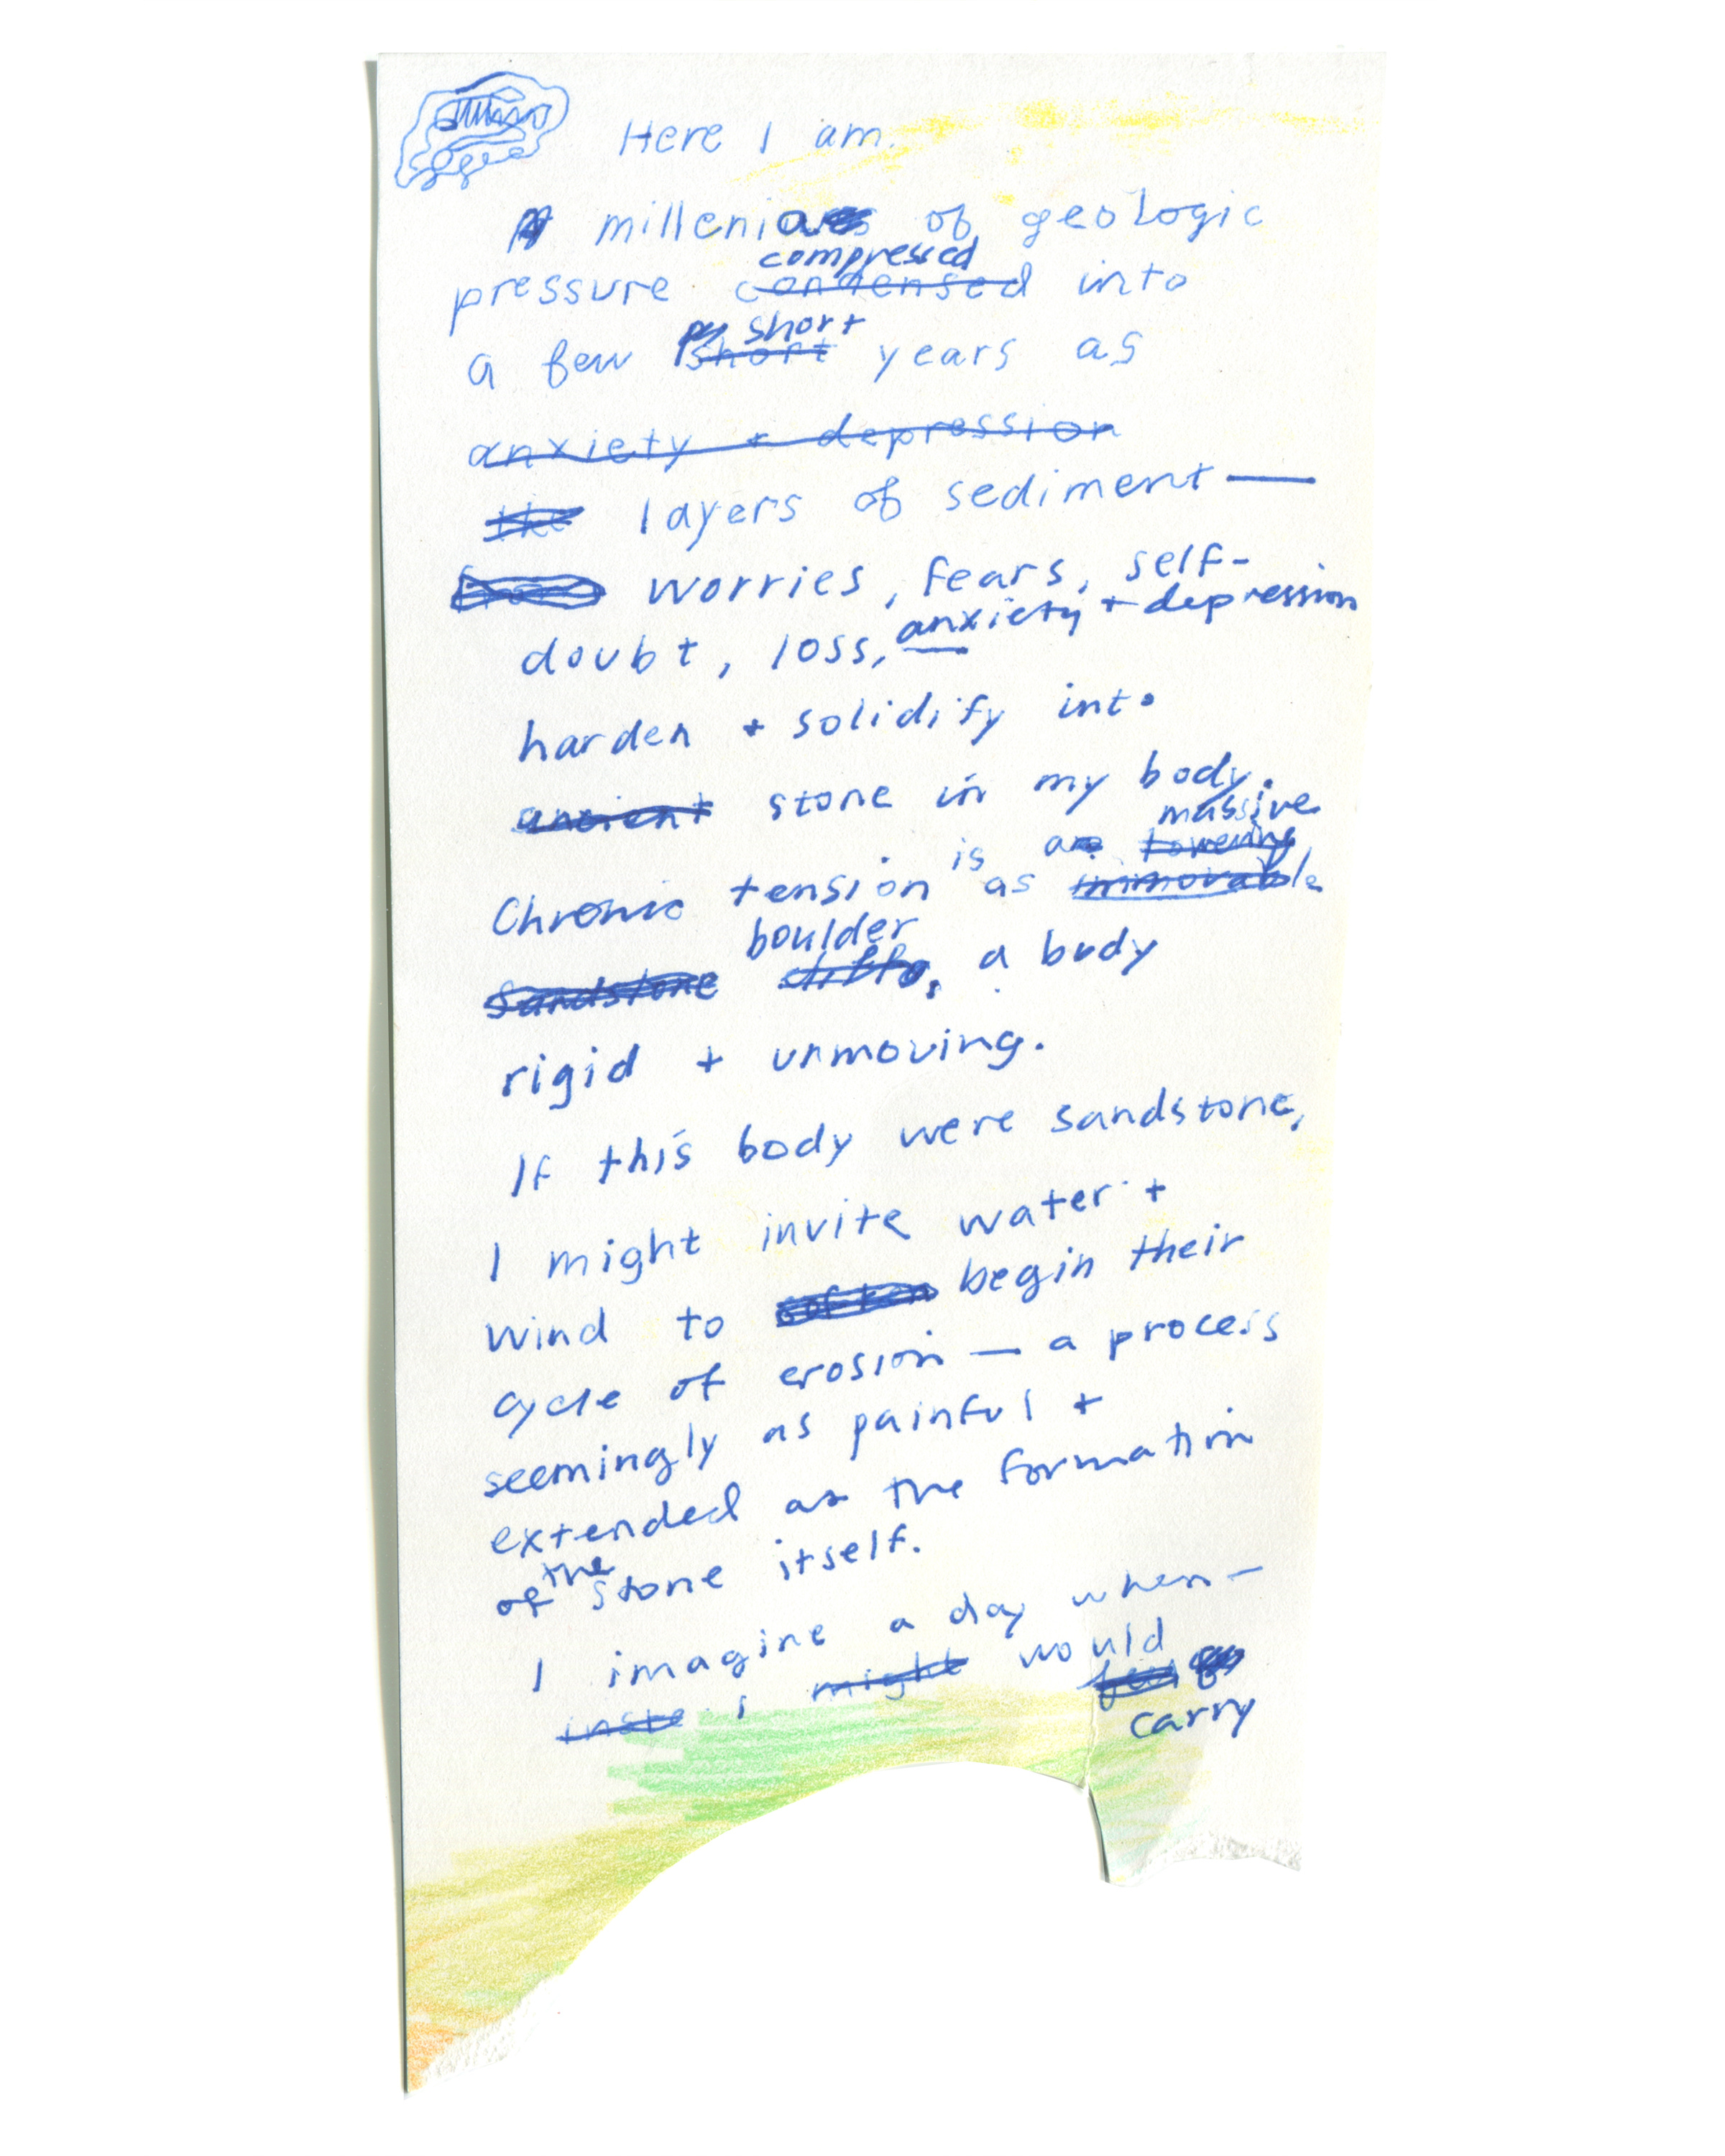 Here I am.
A millenia of geologic
compressed
pressure condensed into
short
a few short years as
anxiety + depression
the layers of sediment —
worries, fears, self-
anxiety + depression
doubt, loss,
harden + solidify into
ancient stone in my body.
massive
is a towering
Chronic tension as immovable
boulder
sandstone cliffs, a body
rigid + unmoving.
If this body were sandstone,
I might invite water +
wind to soften begin their
cycle of erosion — a process
seemingly as painful +
extended as the formation
the
of stone itself.
I imagine a day when —
inste i might would
carry